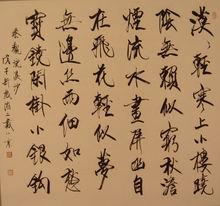 漠漠輕寒上小樓曉
陰無賴似窮秋澹
煙流水畫屏幽自
在飛花輕似夢
無邊絲雨細如愁
寶鏡閑掛小銀鈎
秦觀浣溪沙